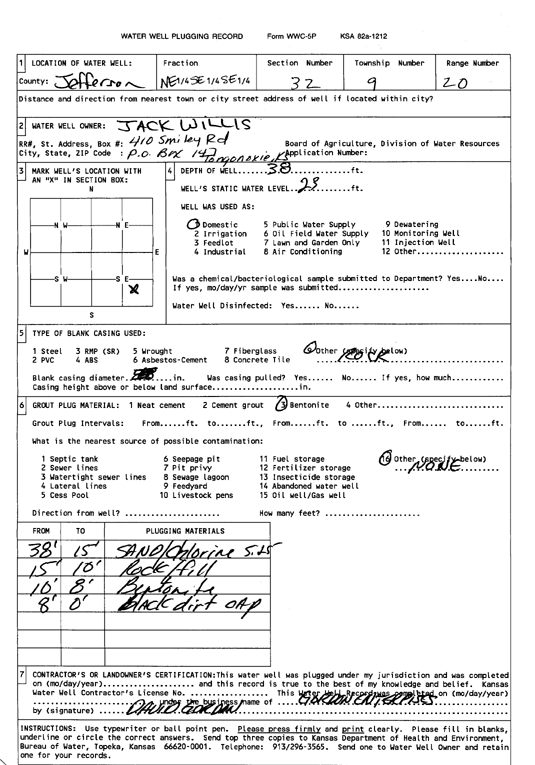 WATER WELL PLUGGING RECORD Form WWC-5P KSA 82a-1212
1 LOCATION OF WATER WELL: Fraction Section Number Township Number Range Number
County: Jefferson NE1/4SE1/4SE1/4 32 9 20
Distance and direction from nearest town or city street address of well if located within city?
2 WATER WELL OWNER: JACK WILLIS
RR#, St. Address, Box #: 410 Smiley Rd Board of Agriculture, Division of Water Resources
City, State, ZIP Code : P.O. Box 147 Tonganoxie, Ks Application Number:
3 MARK WELL'S LOCATION WITH AN "X" IN SECTION BOX:
N
N W N E
W E
S W S E
X
S
4 DEPTH OF WELL......38......ft.
WELL'S STATIC WATER LEVEL..28.....ft.
WELL WAS USED AS:
1 Domestic 5 Public Water Supply 9 Dewatering
2 Irrigation 6 Oil Field Water Supply 10 Monitoring Well
3 Feedlot 7 Lawn and Garden Only 11 Injection Well
4 Industrial 8 Air Conditioning 12 Other..................
Was a chemical/bacteriological sample submitted to Department? Yes....No....
If yes, mo/day/yr sample was submitted...................
Water Well Disinfected: Yes...... No......
5 TYPE OF BLANK CASING USED:
1 Steel 3 RMP (SR) 5 Wrought 7 Fiberglass 9 Other (specify below)
2 PVC 4 ABS 6 Asbestos-Cement 8 Concrete Tile ROCK
Blank casing diameter........in. Was casing pulled? Yes...... No...... If yes, how much..........
Casing height above or below land surface.................in.
6 GROUT PLUG MATERIAL: 1 Neat cement 2 Cement grout 3 Bentonite 4 Other...................
Grout Plug Intervals: From.....ft. to.......ft., From......ft. to ......ft., From...... to......ft.
What is the nearest source of possible contamination:
1 Septic tank 6 Seepage pit 11 Fuel storage 16 Other (specify below)
2 Sewer lines 7 Pit privy 12 Fertilizer storage ...NONE.........
3 Watertight sewer lines 8 Sewage lagoon 13 Insecticide storage
4 Lateral lines 9 Feedyard 14 Abandoned water well
5 Cess Pool 10 Livestock pens 15 Oil well/Gas well
Direction from well? .................... How many feet? .....................
FROM TO PLUGGING MATERIALS
38' 15' SAND/Chlorine
15' 10' Rock/fill
10' 8' Bentonite
8' 0' BlAck dirt CAP
7 CONTRACTOR'S OR LANDOWNER'S CERTIFICATION:This water well was plugged under my jurisdiction and was completed
on (mo/day/year).................... and this record is true to the best of my knowledge and belief. Kansas
Water Well Contractor's License No. ................. This Water Well Record was completed on (mo/day/year)
....................under the business name of GORDON ENTERPRISES
by (signature) DAVID GORDON
INSTRUCTIONS: Use typewriter or ball point pen. Please press firmly and print clearly. Please fill in blanks,
underline or circle the correct answers. Send top three copies to Kansas Department of Health and Environment,
Bureau of Water, Topeka, Kansas 66620-0001. Telephone: 913/296-3565. Send one to Water Well Owner and retain
one for your records.